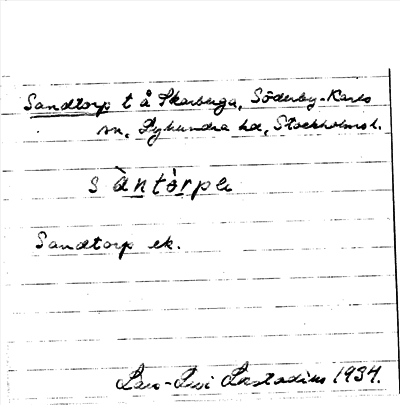 Sandtorp t å Skarberga, Söderby-Karls
sn, Lyhundra hd, Stockholms l.
sàntòrpa
Sandtorp ek.
Lars-Levi Læstadius 1934.